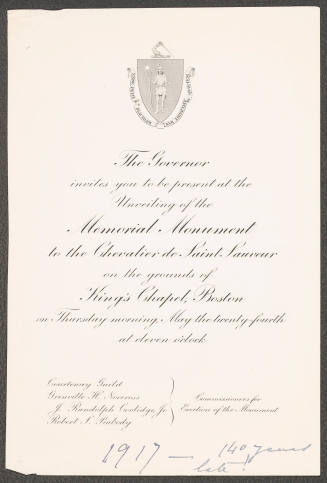 The Governor
invites you to be present at the
Unveiling of the
Memorial Monument
to the Chevalier de Saint Sauveur
on the grounds of
King's Chapel, Boston
on Thursday morning, May the twenty-fourth
at eleven o'clock
Courtenay Guild
Grenville H. Norcross
J. Randolph Coolidge, Jr.
Robert S. Peabody
Commissioners for
Erection of the Monument
1917 — 140 years
late!